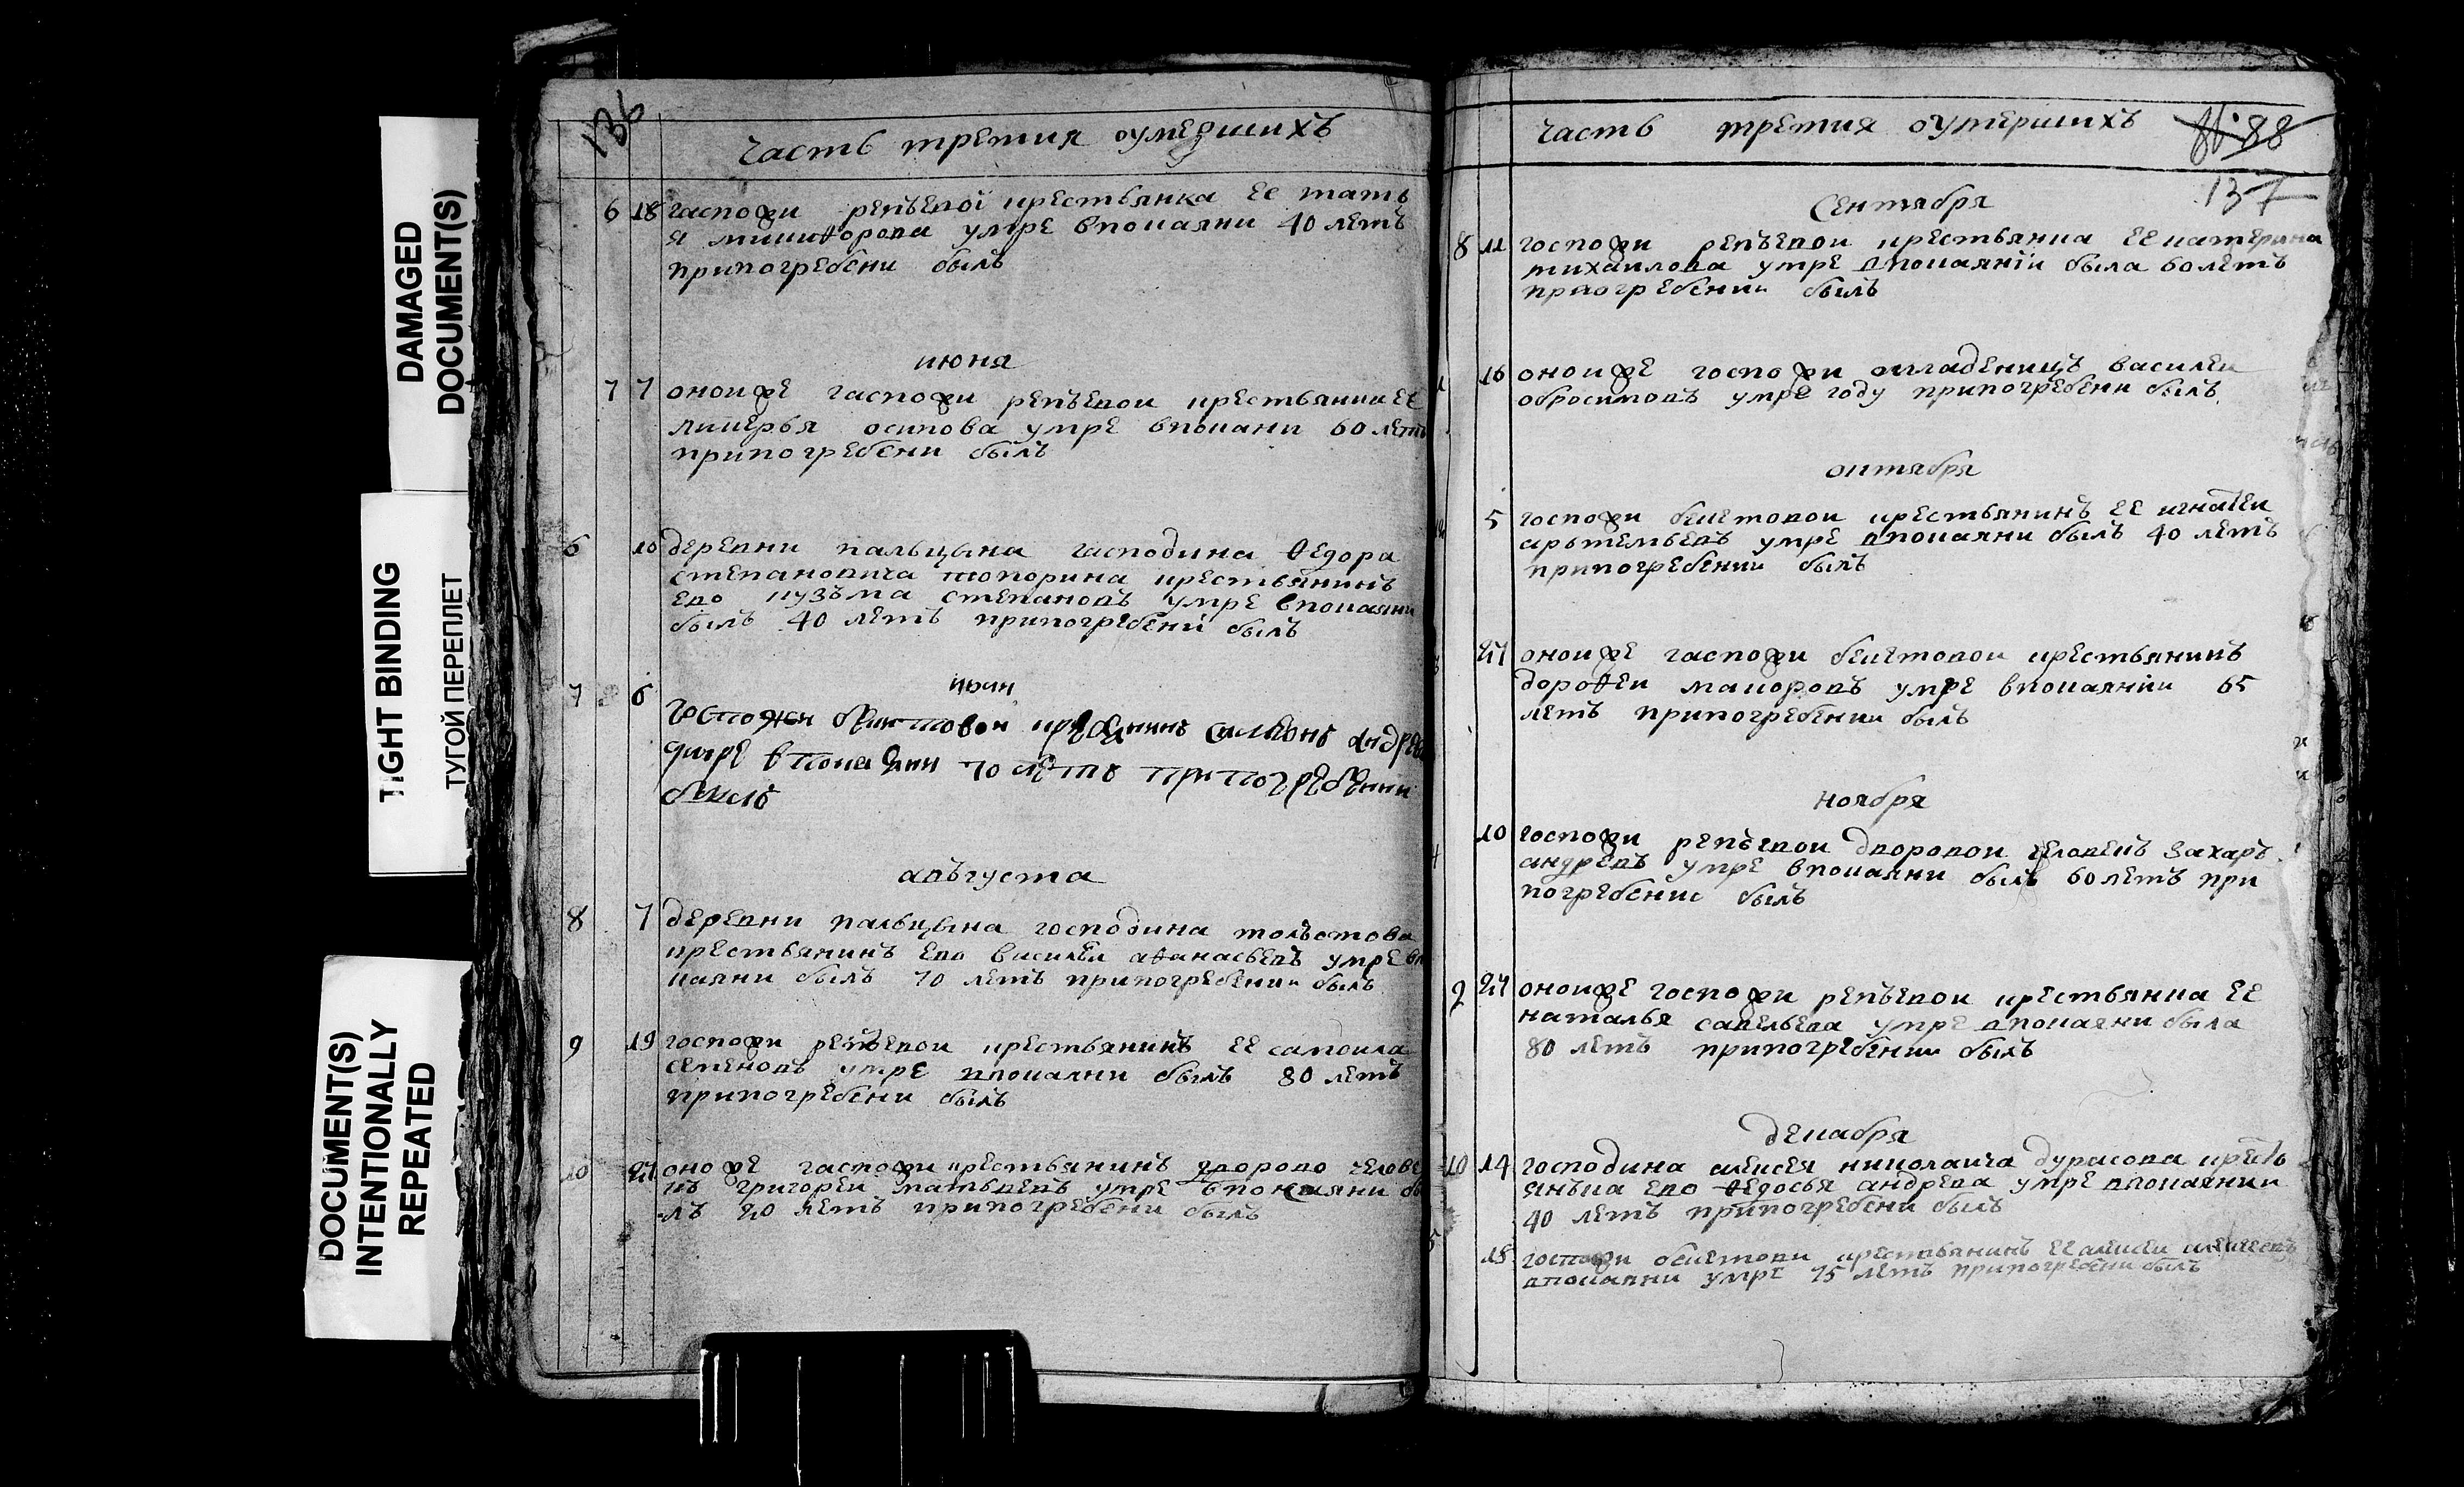 DAMAGED
DOCUMENT(S)
TIGHT BINDING
ТУГОЙ ПЕРЕПЛЕТ
DOCUMENT(S)
INTENTIONALLY
REPEATED
136
часть третия оумершихъ
6 18 гаспожи репьевоі крестьянка ее тать
я никифорова умре впокаяни 40 летъ
припогребени былъ
июня
7 7 оноиже гаспожи репьевои крестьянки ее
лукерья осипова умре впокани 60 летъ
припогребени былъ
6 10 деревни пальцына гасподина ѳедора
степановича топорина крестьянинъ
ево кузьма степановъ умре впокаяни
былъ 40 летъ припогребени былъ
июли
7 6 госпожи бекетовои симеонъ андрее
умре впокаянии 70 летъ припогребении
былъ
августа
8 7 деревни пальцына господина
крестьянинъ ево василеи аѳанасьевъ умре вп
каяни былъ 70 летъ припогребении былъ
9 19 госпожи репьевои крестьянинъ ее самоила
семеновъ умре впокаяни былъ 80 летъ
припогребени былъ
10 27 оноже гаспожи крестьянинъ дворово челове
къ григореи матвеевъ умре впокаяни бы
лъ 20 летъ припогребени былъ
часть третия оумершихъ 88
137
Сентября
8 11 госпожи репьевои крестьянка ее катерина
михаилова умре впокаяніи была 60 летъ
припогребении былъ
16 оноиже госпожи младеницъ василеи
абросимовъ умре году припогребени былъ
октября
5 госпожи бекетовои крестьянинъ ее игнатеи
арьтемьевъ умре впокаяни былъ 40 летъ
припогребении былъ
27 оноиже гаспожи бекетовои крестьянинъ
дороѳеи макоровъ умре впокаяніи 65
летъ припогребении былъ
ноября
10 госпожи репьевои дворовои человекъ захаръ
андревъ умре впокаяни былъ 60 летъ при
погребении былъ
9 27 оноиже госпожи репьевои крестьянка ее
наталья савельева умре впокаяни была
80 летъ припогребении былъ
декабря
10 14 господина алексея николаича дурасова кресть
янька ево ѳедосья андрева умре впокаянии
40 летъ припогребени былъ
18 госпожи бекетови крестьянинъ ее алексеи
впокаяни умре 75 летъ припогребени былъ